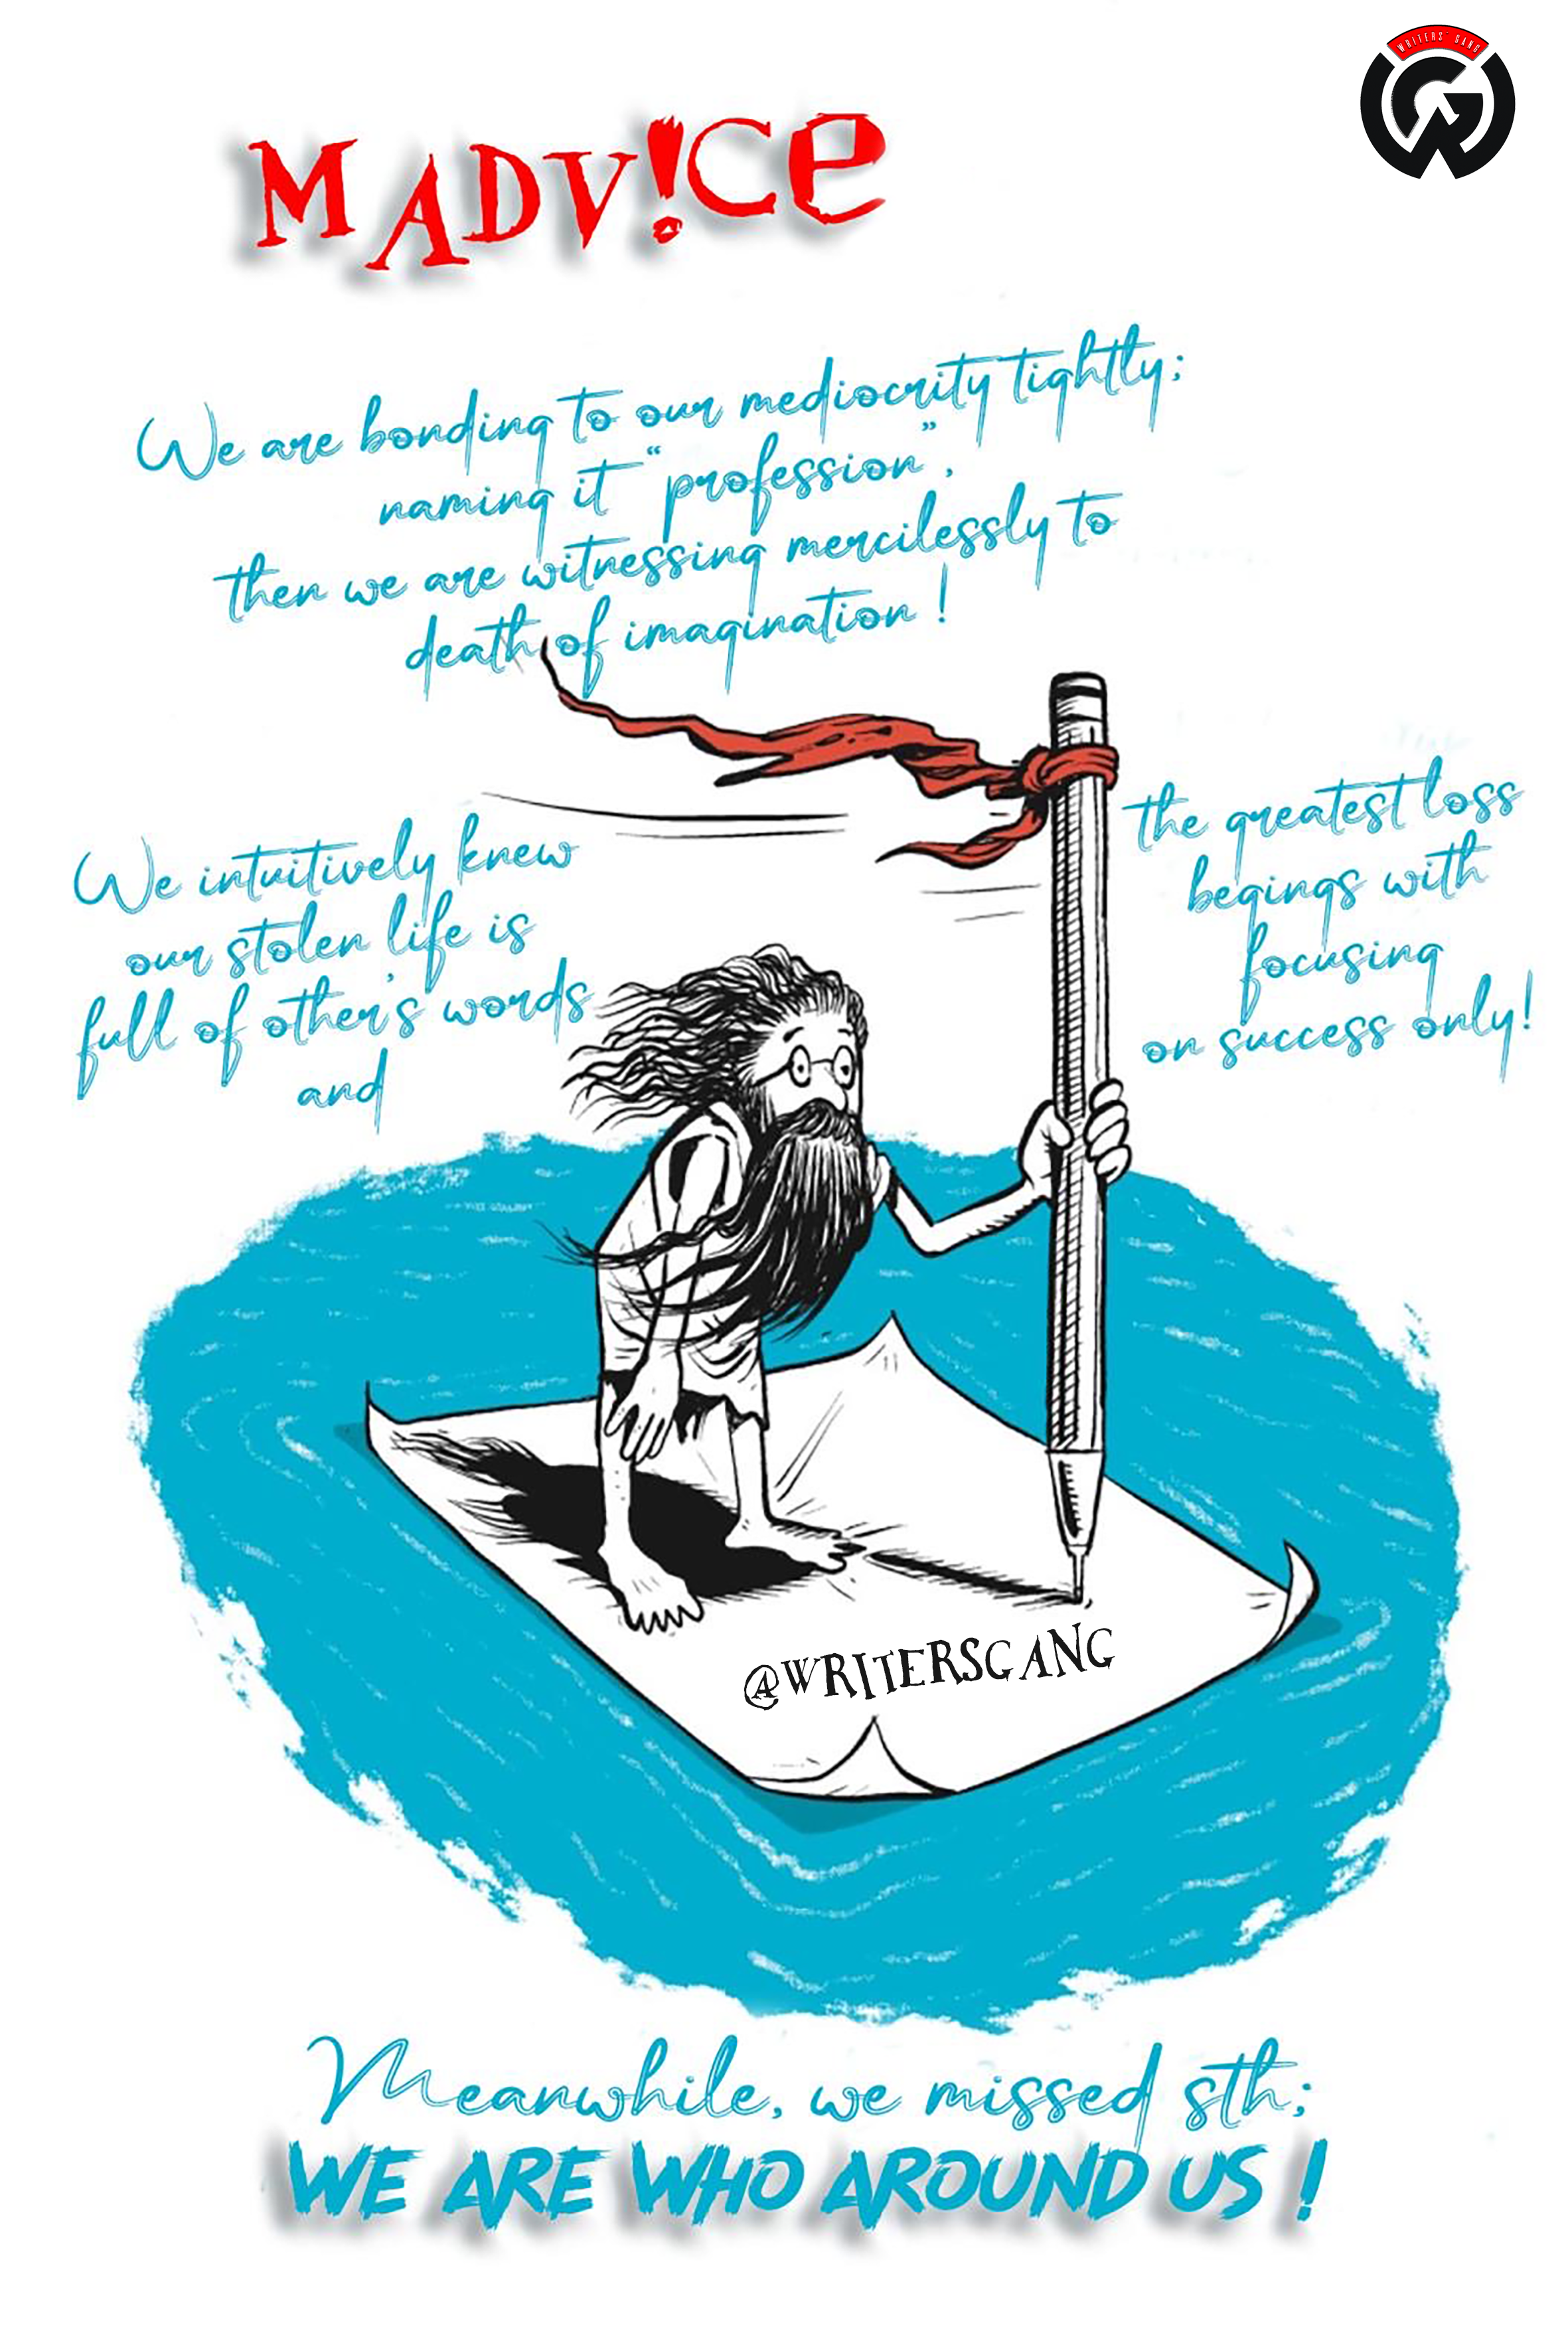 WRITERS' GANG
MADV!CE
We are bonding to our mediocrity tightly;
naming it "profession",
then we are witnessing mercilessly to
death of imagination!
We intuitively knew
our stolen life is
full of other's words
and
the greatest loss
begings with
focusing
on success only!
@WRITERSGANG
Meanwhile, we missed sth;
WE ARE WHO AROUND US!